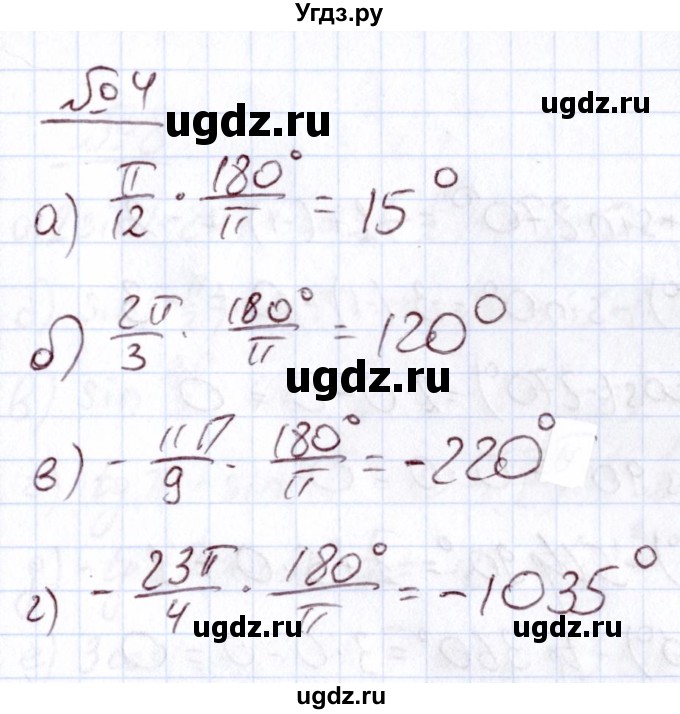 Угдз.ру
№ 4
ugdz.ru
а) π/12 · 180°/π = 15°
б) 2π/3 · 180°/π = 120°
ugdz.ru
в) - 11π/9 · 180°/π = -220°
г) - 23π/4 · 180°/π = -1035°
ugdz.ru ugdz.ru
ugdz.ru